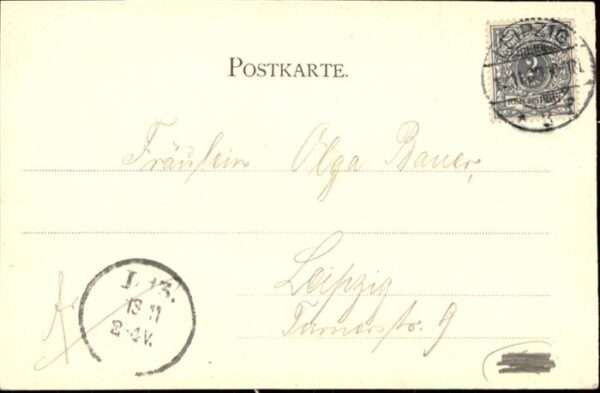 POSTKARTE.
LEIPZIG
3
Fräulein Olga Bauer,
Leipzig
Turnerstr. 9
11
2-4V.